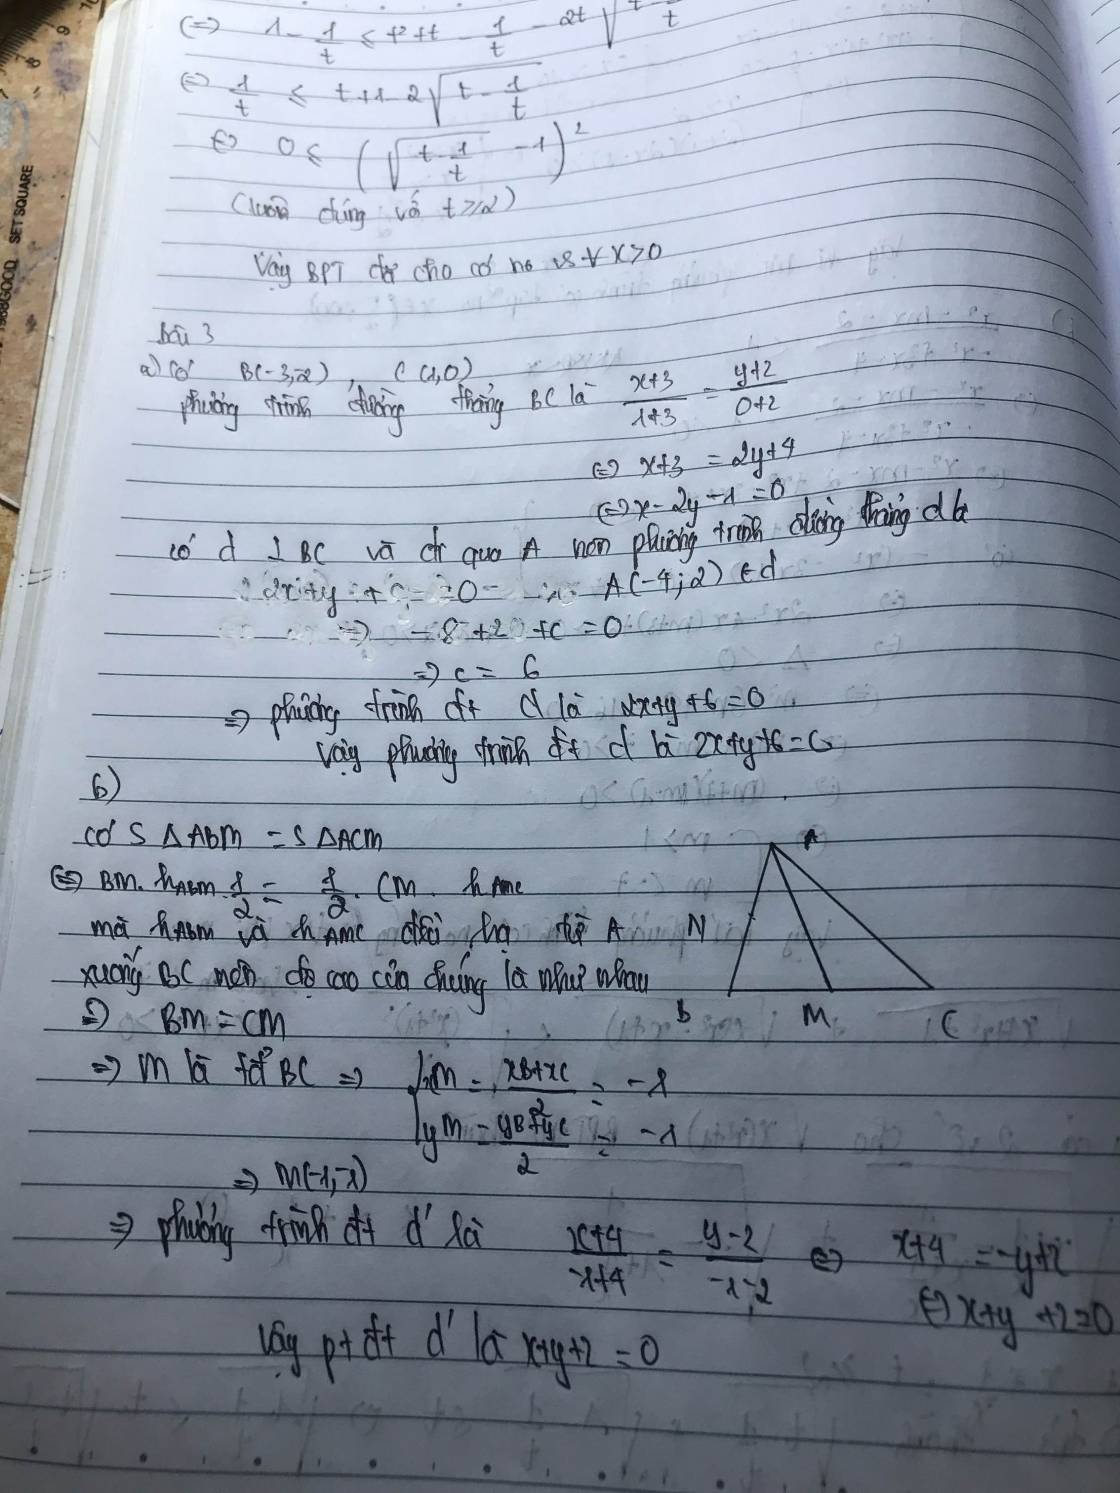 (=) 1 - 1/t ≤ t² + t - 1/t - 2t√
(=) 1/t ≤ t + 1 - 2√(t - 1/t)
(=) 0 ≤ (√(t - 1/t) - 1)²
(luôn đúng với t ≥ 2)
Vậy BPT đã cho có no vs ∀ x > 0
Bài 3
a) Có B(-3,-2), C(1,0)
phương trình đường thẳng BC là (x+3)/(1+3) = (y+2)/(0+2)
(=) x+3 = 2y+4
(=) x - 2y - 1 = 0
có d ⊥ BC và đi qua A nên phương trình đường thẳng d là
2x+y + c = 0 A(-4;2) ∈ d
=) -8 + 2 + c = 0
=) c = 6
=) phương trình đt d là 2x+y+6=0
Vậy phương trình đt d là 2x+y+6=0
b)
có S ΔABM = S ΔACM
(=) BM. hABM. 1/2 = 1/2. CM. hAMC
mà hABM và hAMC đều hạ từ A
xuống BC nên độ cao của chúng là như nhau
=) BM = CM
=) M là tđ BC =) xM = (xB+xC)/2 = -1
yM = (yB+yC)/2 = -1
=) M(-1,-1)
A
N
B M C
=) phương trình đt d' là (x+4)/(-1+4) = (y-2)/(-1-2) (=) x+4 = -y+2
(=) x+y+2=0
Vậy pt đt d' là x+y+2=0
1988GOOD SET SQUARE
8 9 10